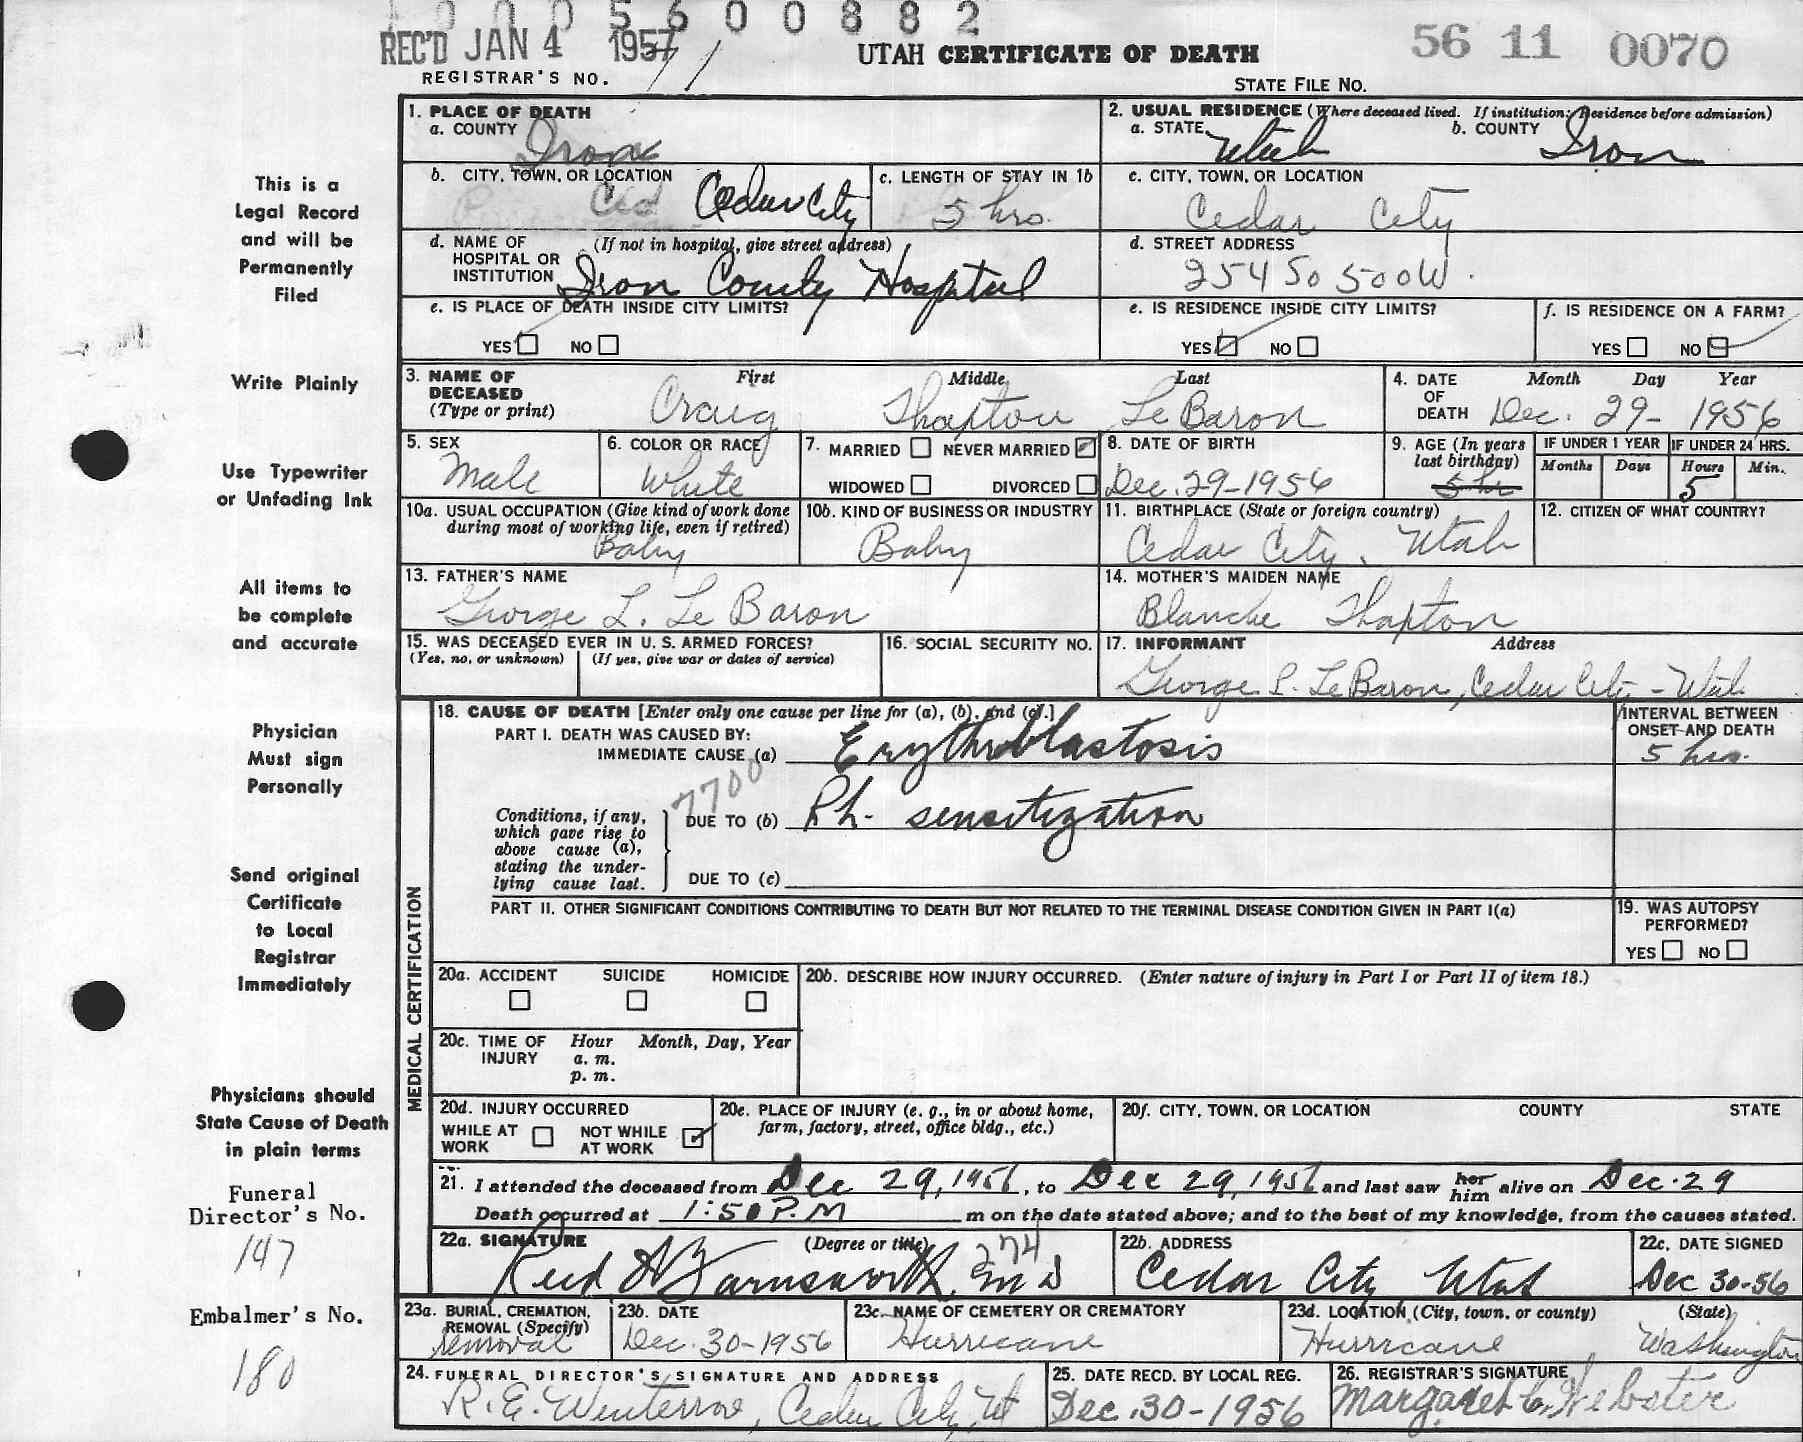 1 0 0 0 5 6 0 0 8 8 2
REC'D JAN 4 1957
REGISTRAR'S NO. 71
UTAH CERTIFICATE OF DEATH
56 11 0070
STATE FILE NO.
This is a
Legal Record
and will be
Permanently
Filed
Write Plainly
Use Typewriter
or Unfading Ink
All items to
be complete
and accurate
Physician
Must sign
Personally
Send original
Certificate
to Local
Registrar
Immediately
Physicians should
State Cause of Death
in plain terms
Funeral
Director's No.
147
Embalmer's No.
180
1. PLACE OF DEATH
a. COUNTY Iron
2. USUAL RESIDENCE (Where deceased lived. If institution: Residence before admission)
a. STATE Utah b. COUNTY Iron
b. CITY, TOWN, OR LOCATION Ced Cedar City
c. LENGTH OF STAY IN 1b 5 hrs.
c. CITY, TOWN, OR LOCATION
Cedar City
d. NAME OF HOSPITAL OR INSTITUTION (If not in hospital, give street address)
Iron County Hospital
d. STREET ADDRESS
254 So 500 W.
e. IS PLACE OF DEATH INSIDE CITY LIMITS?
YES NO
e. IS RESIDENCE INSIDE CITY LIMITS?
YES NO
f. IS RESIDENCE ON A FARM?
YES NO
3. NAME OF DECEASED (Type or print) First Middle Last
Craig Thapton Le Baron
4. DATE OF DEATH Month Day Year
Dec. 29- 1956
5. SEX
Male
6. COLOR OR RACE
White
7. MARRIED NEVER MARRIED
WIDOWED DIVORCED
8. DATE OF BIRTH
Dec. 29-1956
9. AGE (In years last birthday)
5 hr
IF UNDER 1 YEAR IF UNDER 24 HRS.
Months Days Hours Min.
5
10a. USUAL OCCUPATION (Give kind of work done during most of working life, even if retired)
Baby
10b. KIND OF BUSINESS OR INDUSTRY
Baby
11. BIRTHPLACE (State or foreign country)
Cedar City, Utah
12. CITIZEN OF WHAT COUNTRY?
13. FATHER'S NAME
George L. Le Baron
14. MOTHER'S MAIDEN NAME
Blanche Thapton
15. WAS DECEASED EVER IN U. S. ARMED FORCES?
(Yes, no, or unknown) (If yes, give war or dates of service)
16. SOCIAL SECURITY NO.
17. INFORMANT Address
George L. Le Baron, Cedar City - Utah
MEDICAL CERTIFICATION
18. CAUSE OF DEATH [Enter only one cause per line for (a), (b), and (c).]
PART I. DEATH WAS CAUSED BY:
IMMEDIATE CAUSE (a) Erythroblastosis
INTERVAL BETWEEN ONSET AND DEATH
5 hrs.
7700
Conditions, if any, which gave rise to above cause (a), stating the underlying cause last.
DUE TO (b) Rh- sensitization
DUE TO (c)
PART II. OTHER SIGNIFICANT CONDITIONS CONTRIBUTING TO DEATH BUT NOT RELATED TO THE TERMINAL DISEASE CONDITION GIVEN IN PART I(a)
19. WAS AUTOPSY PERFORMED?
YES NO
20a. ACCIDENT SUICIDE HOMICIDE
20b. DESCRIBE HOW INJURY OCCURRED. (Enter nature of injury in Part I or Part II of item 18.)
20c. TIME OF INJURY Hour Month, Day, Year
a. m.
p. m.
20d. INJURY OCCURRED
WHILE AT WORK NOT WHILE AT WORK
20e. PLACE OF INJURY (e. g., in or about home, farm, factory, street, office bldg., etc.)
20f. CITY, TOWN, OR LOCATION COUNTY STATE
21. I attended the deceased from Dec 29, 1956, to Dec 29, 1956 and last saw her him alive on Dec. 29
Death occurred at 1:50 P.M m on the date stated above; and to the best of my knowledge, from the causes stated.
22a. SIGNATURE (Degree or title)
Reed W Farnsworth, MD 274
22b. ADDRESS
Cedar City Utah
22c. DATE SIGNED
Dec 30-56
23a. BURIAL, CREMATION, REMOVAL (Specify)
Removal
23b. DATE
Dec. 30-1956
23c. NAME OF CEMETERY OR CREMATORY
Hurricane
23d. LOCATION (City, town, or county) (State)
Hurricane Washington
24. FUNERAL DIRECTOR'S SIGNATURE AND ADDRESS
R. E. Winterrose, Cedar City, Ut
25. DATE RECD. BY LOCAL REG.
Dec. 30-1956
26. REGISTRAR'S SIGNATURE
Margaret C. Webster